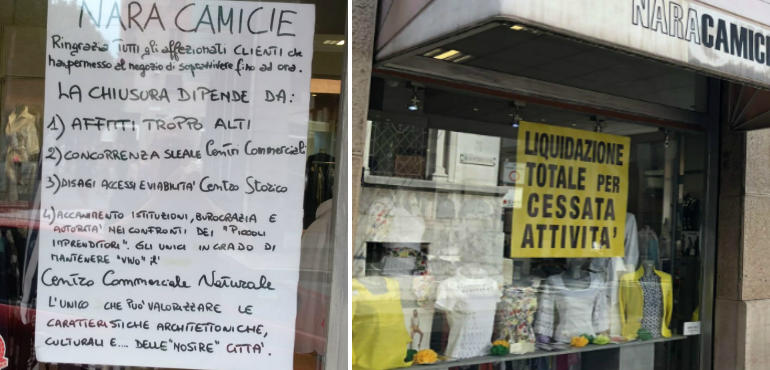 NARA CAMICIE
Ringrazia TUTTI gli affezionati CLIENTI che
han permesso al negozio di sopravvivere fino ad ora.
LA CHIUSURA DIPENDE DA:
1) AFFITTI TROPPO ALTI
2) CONCORRENZA SLEALE Centri Commerciali
3) DISAGI ACCESSI E VIABILITA' Centro Storico
4) ACCANIMENTO ISTITUZIONI, BUROCRAZIA E
AUTORITA' NEI CONFRONTI DEI "PICCOLI
IMPRENDITORI". GLI UNICI IN GRADO DI
MANTENERE "VIVO" il
Centro Commerciale Naturale
L'UNICO CHE PUO' VALORIZZARE LE
CARATTERISTICHE ARCHITETTONICHE,
CULTURALI E.... DELLE "NOSTRE" CITTA'.
NARACAMICIE
LIQUIDAZIONE
TOTALE PER
CESSATA
ATTIVITA'